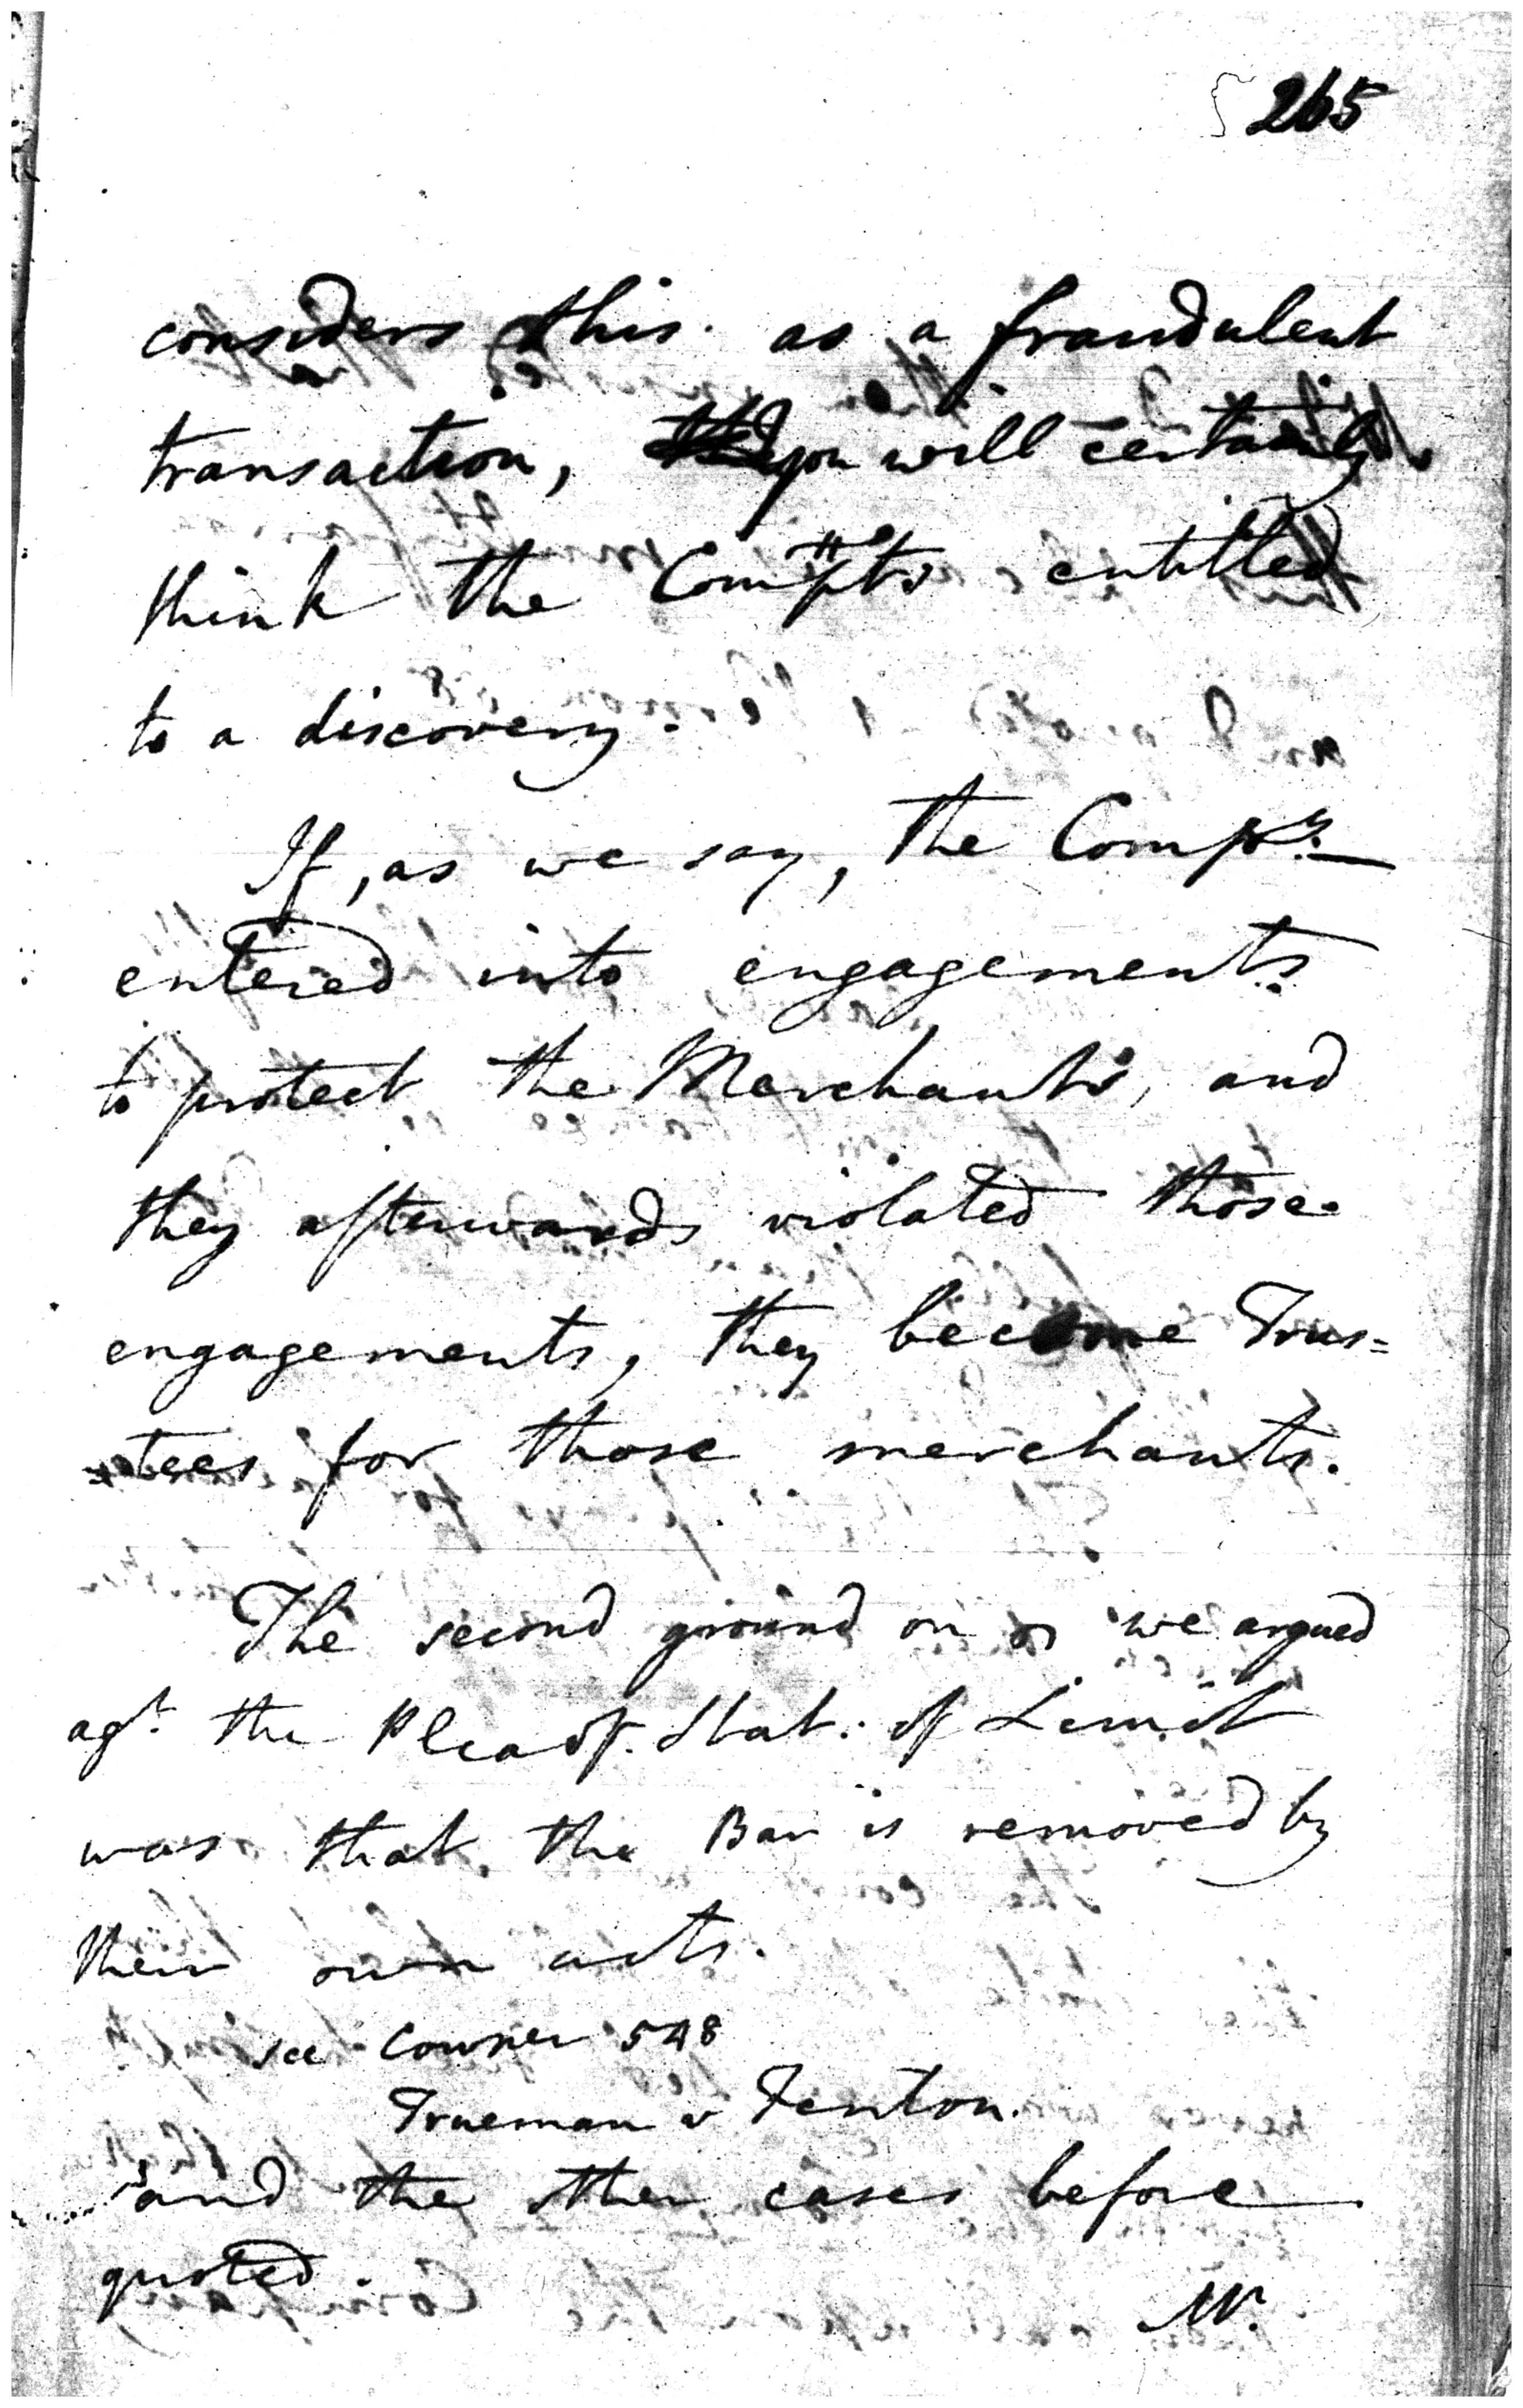 265
considers this as a fraudulent
transaction, you will certainly
think the Compts entitled
to a discovery.
If, as we say, the Compy.
entered into engagements
to protect the Merchants, and
they afterwards violated those
engagements, they become Trus=
=tees for those merchants.
The second ground on we argued
agt. the Plea of. Stat: of Limit
was that the Bar is removed by
their own acts.
see Cowper 548
Trueman v Fenton.
and the other cases before
quoted.
Mr.